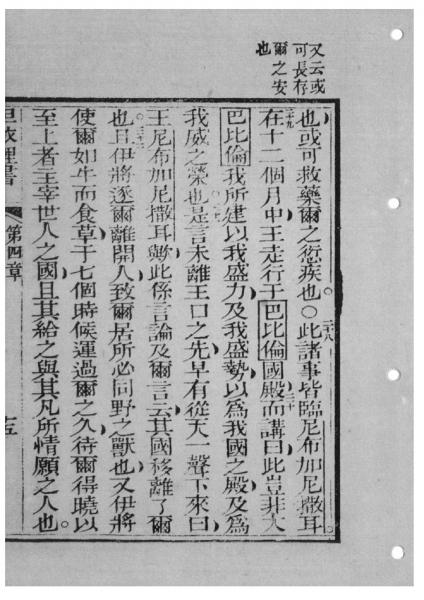 又云或
可長存
爾之安
也
也或可救藥爾之愆疾也○二十八此諸事皆臨尼布加尼撒耳
二十九在十二個月中王走行于巴比倫國殿而講三十曰此豈非大
巴比倫我所建以我盛力及我盛勢以爲我國之殿及爲
我威之榮也三十一是言未離王口之先早有從天一聲下來曰
王尼布加尼撒耳歟此係言論及爾言云其國移離了爾
也三十二且伊將逐爾離開人致爾居所必同野之獸也又伊將
使爾如牛而食草于七個時候運過爾之久待爾得曉以
至上者主宰世人之國且其給之與其凡所情願之人也
但依理書 第四章 十五